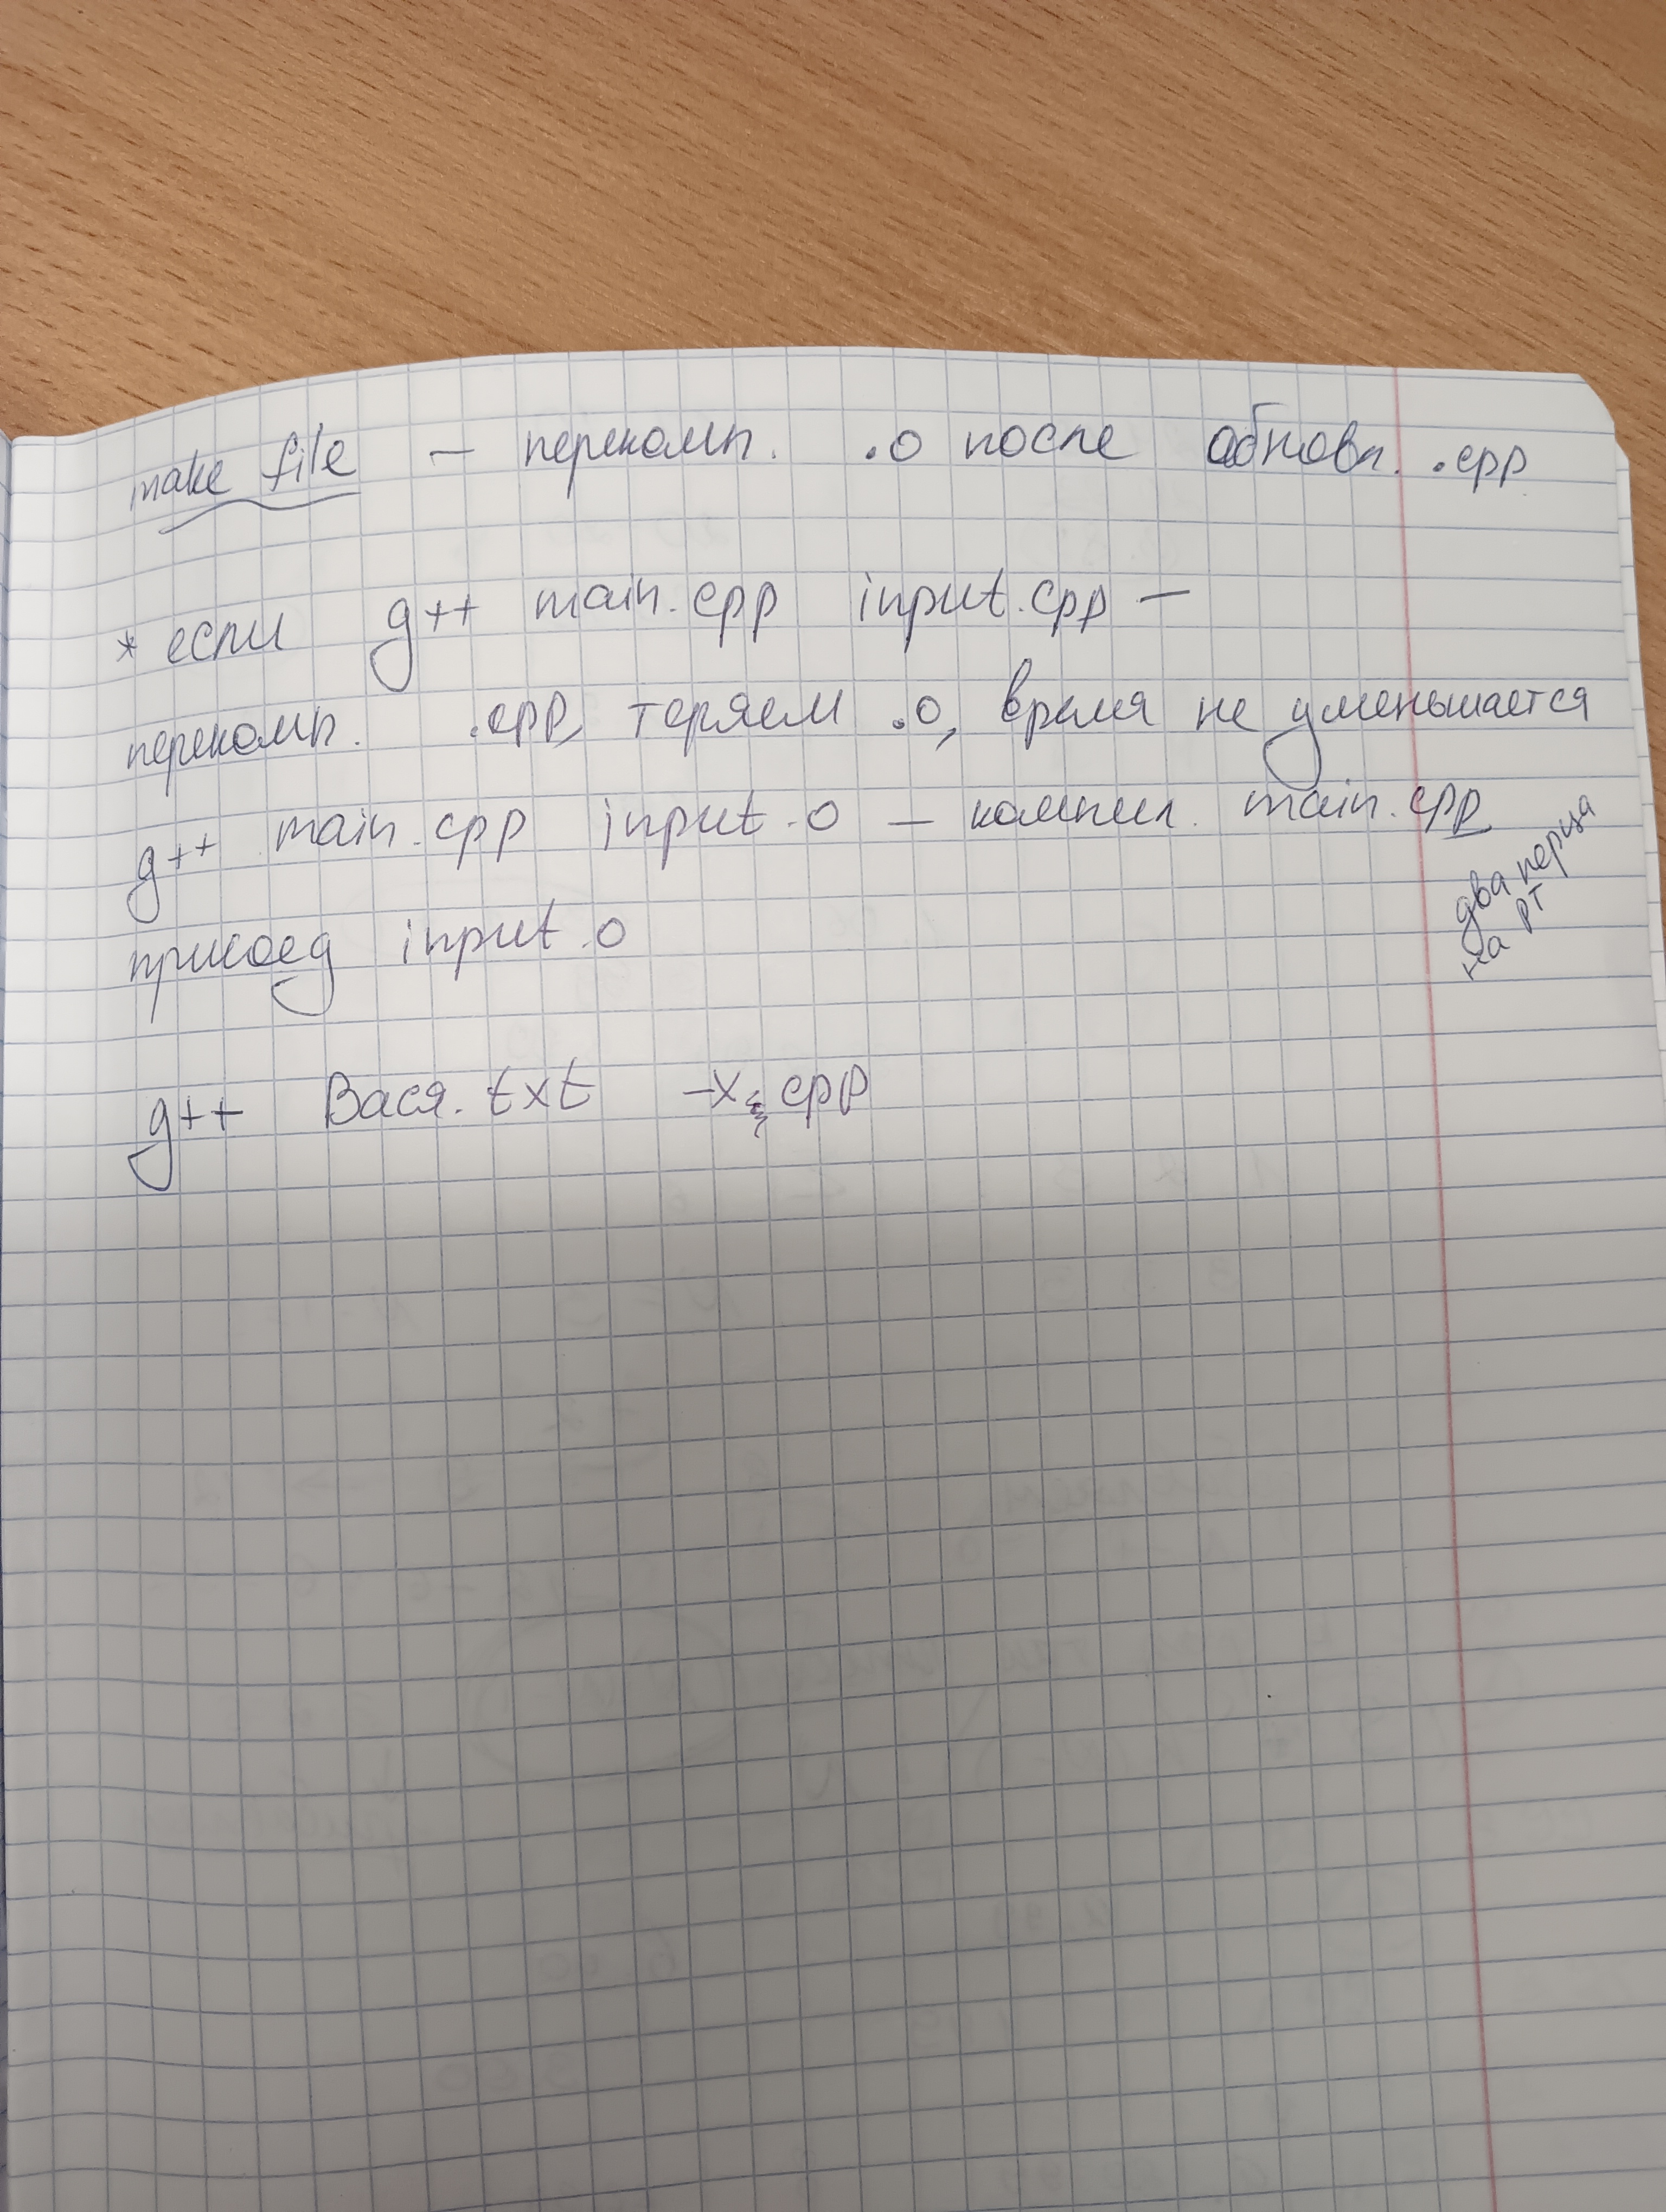 make file — перекомп. .о после обновл. .cpp
* если g++ main.cpp input.cpp —
перекомп. .cpp, теряем .о, время не уменьшается
g++ main.cpp input.o — компил. main.cpp
присоед input.o
два перца
на РТ
g++ Вася.txt -x cpp